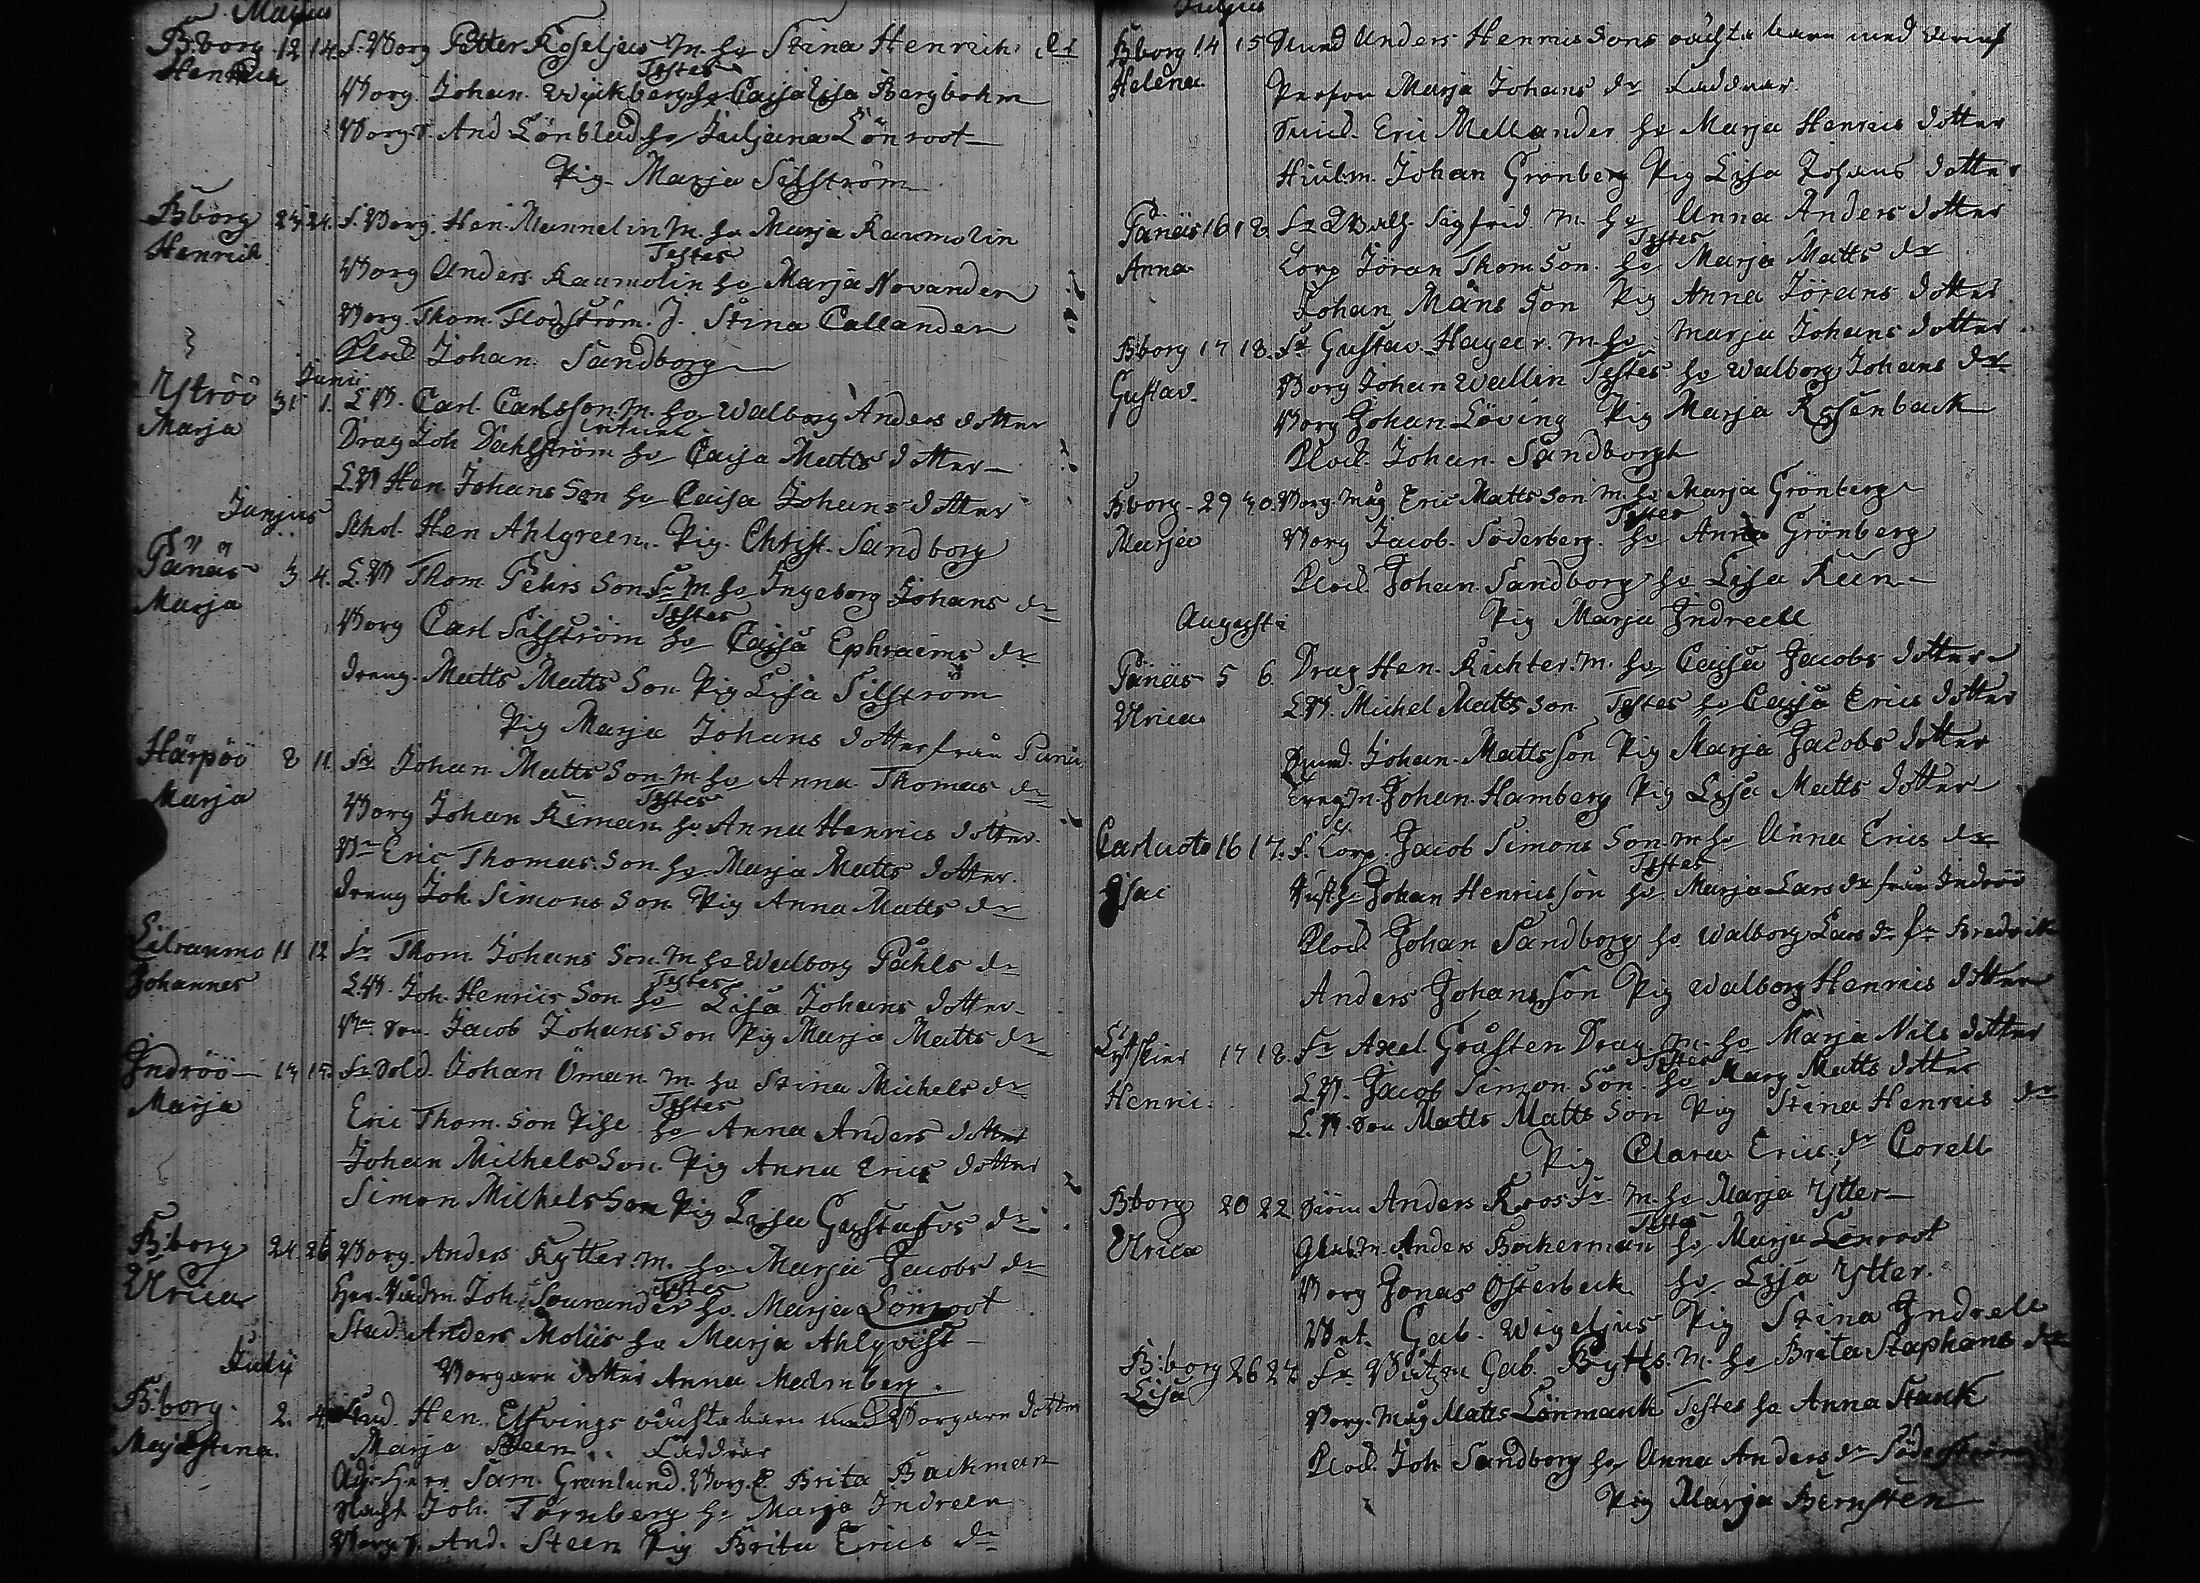 Majus
B:borg 12 14. F. Borg Petter Koseljus M. ho Stina Henrichs dr
Henrich Testes
Borg. Johan Wijkberg ho Caisa Lisa Bergbohm
Borg.s. And Lönblad ho Juljana Lönroot
Pig. Marja Silström
B:borg 23 24. F. Borg. Hen. Mannelin M. ho Marja Raumolin
Henrich Testes
Borg Anders Raumolin ho Marja Novander
Borg. Thom. Flodström. J. Stina Callander
Klock Johan Sandborg
Junii
Ytröö 31 1. L.B. Carl Carlsson. M. ho Walborg Anders dotter
Marja
Drag Joh Dahlström ho Caisa Matts dotter
L.B Hen Johans Son ho Caisa Johans dotter
Junjus
Schol. Hen Ahlgreen. Pig. Christ. Sandborg
Pänäs 3 4. L.B Thom Pehrs Son Fr M. ho Ingeborg Johans dr
Marja Testes
Borg Carl Silström ho Caisa Ephraims dr
dreng. Matts Matts Son. Pig Lisa Silström
Pig Marja Johans dotter från Pänäs
Härpöö 8 11. Fr Johan Matts Son. M. ho Anna Thomas dr
Marja Testes
Borg Johan Reman ho Anna Henrics dotter.
Bn Eric Thomas Son. ho Marja Matts dotter.
dreng Joh. Simons Son Pig Anna Matts dr
Lilraumo 11 12 Fr Thom Johans Son. M ho Walborg Påhls dr
Johannes Testes
L.B. Joh. Henrics Son. ho Lisa Johans dotter
Bn son Jacob Johans Son Pig Marja Matts dr
Indröö 14 15. Fr. Sold. Johan Öman. M. ho Stina Michels dr
Marja Testes
Eric Thom. Son Pise ho Anna Anders dotter
Johan Michels Son. Pig Anna Erics dotter
Simon Michels Son Pig Lisa Gustafvs dr
B:borg 24 26 Borg. Anders Kytter. M. ho Marja Jacobs dr
Ulrica Testes
Her. Rådm. Joh. Sourander ho. Marja Lönroot
Stud. Anders Molüs ho Marja Ahlqvist
Julij
Borgare dotter Anna Malmberg.
B:borg. 2. 4. Stud. Hen. Elfvings oäckta barn med Borgare dotter
Maja Stina.
Marja Steen. Faddrar
Adj. Herr Sam. Grönlund. Borg. E. Brita Backman
Joh. Törnberg ho Marja Indreen
Borg. s. And. Steen Pig Brita Erics dr
Julius
B:borg 14 15 Anders Henrics Sons oäckta barn med
Helena
Person Marja Johans dr Faddrar.
Smed. Eric Mellander ho Marja Henrics dotter
Hiulm. Johan Grönberg Pig Lisa Johans dotter
Pänäs 16 18. Sigfrid M. ho Anna Anders dotter
Anna Testes
Corp Jöran Thom Son. ho Marja Matts dr
Johan Måns Son Pig Anna Jörans dotter
B:borg 17 18. Fr Gustav Hageer. M. ho Marja Johans dotter
Gustav.
Borg Johan Wallin Testes ho Walborg Johans dr
Borg Johan Löving Pig Marja Rosenback
Klock. Johan Sandborgh
B:borg. 29 30. Borg. måg Eric Matts Son M. ho Marja Grönberg
Marja Testes
Borg Jacob. Söderberg. ho Anna Grönberg
Klock Johan Sandborg ho Lisa Keen
Pig Marja Indreell
Augusti
Pänäs 5 6. Drag Hen. Richter. M. ho Caisa Jacobs dotter
Ulrica
L.B. Michel Matts Son Testes ho Caisa Erics dotter
Johan Matts Son Pig Marja Jacobs dotter
Johan Hamberg Pig Lisa Matts dotter
Carluoto 16 17. F. Corp. Jacob Simons Son M ho Anna Erics dr
Isac Testes
Johan Henricsson ho Marja Lars dr från Indröö
Klock Johan Sandborg ho Walborg Lars dr fr Bredvik
Anders Johansson Pig Walborg Henrics dotter
Lytskier 17 18. Fr Axel Gråsten Drag M. ho Marja Nils dotter
Henric. Testes
L.B. Jacob Simon Son. ho Marg Matts dotter
L.B. son Matts Matts Son Pig Stina Henrics dr
Pig Clara Erics dr Corell
B:borg 20 22 Siöm Anders Koos Fr. M. ho Marja Ytter
Ulrica Testes
Glasm. Anders Backerman ho Marja Lönroot
Borg Jonas Österback ho Lisa Ytter.
Gab. Wigeljus Pig Stina Indrell
B:borg 26 27 Fr. Gab. Bytts. M. ho Brita Staphans dr
Lisa
Borg. måg Matts Lönmark Testes ho Anna Stark
Klock. Joh Sandborg ho Anna Anders dr Söderström
Pig Marja Bernsten